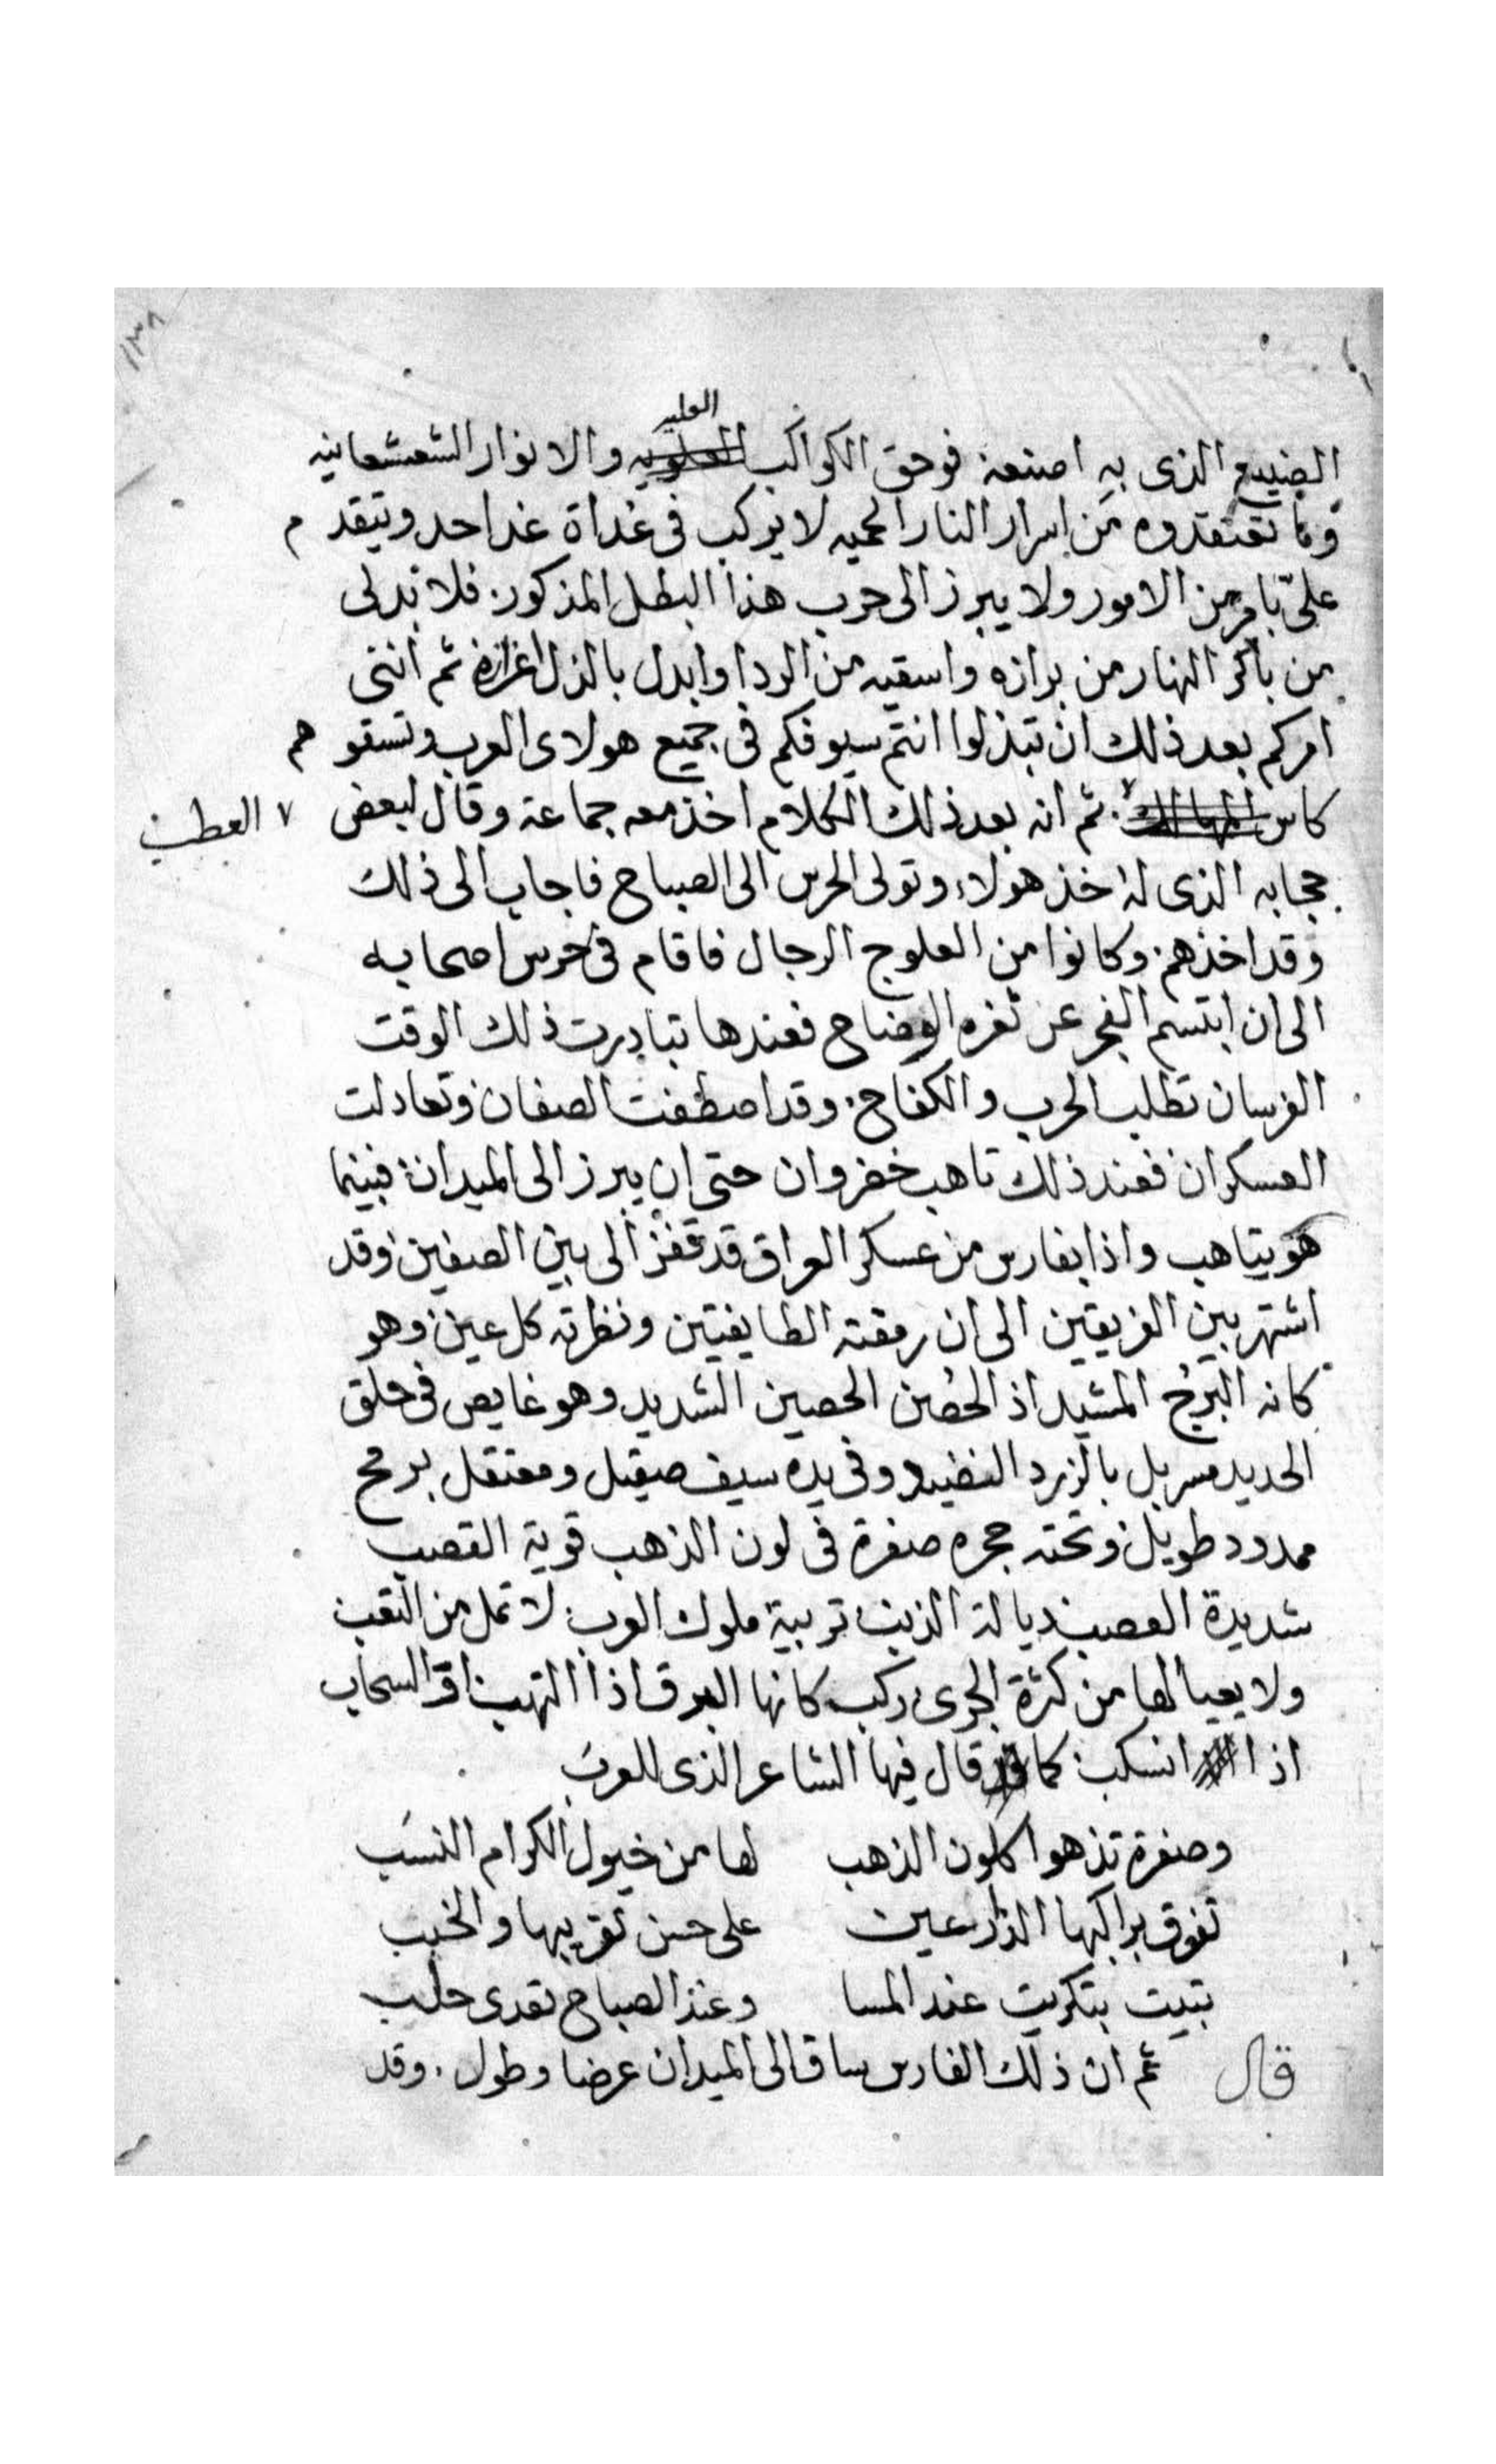 ١٣٨
العليه
الصنيع الذى به اصنعه فوحق الكواكب العلويه والانوار الشعشعانيه
وما تعتقدوه من اسرار النار المحميه لا يركب فى غداة غد احد ويتقدم
علىّ بامر من الامور ولا يبرز الى حرب هذا البطل المذكور فلا بد لى
من باكر النهار من برازه واسقيه من الردا وابدل بالذل اعزازه ثم اننى
امركم بعد ذلك ان تبذلوا انتم سيوفكم فى جميع هولاى العرب وتسقوهم
كاس المهالك ثم انه بعد ذلك الكلام اخذ معه جماعة وقال لبعض ٧ العطب
حجابه الذى له خذ هولاء وتولى الحرس الى الصباح فاجاب الى ذلك
وقد اخذهم وكانوا من العلوج الرجال فاقام فى حرس اصحابه
الى ان ابتسم الفجر عن ثغره الوضاح فعندها تبادرت ذلك الوقت
الفرسان تطلب الحرب والكفاح وقد اصطفت الصفان وتعادلت
العسكران فعند ذلك تاهب خفروان حتى ان يبرز الى الميدان فبينما
هو يتاهب واذا بفارس من عسكر العراق قد قفز الى بين الصفين وقد
اشتهر بين الفريقين الى ان رمقته الطايفتين ونظرته كل عين وهو
كانه البرج المشيد اذ الحصن الحصين الشديد وهو غايص فى حلق
الحديد مسربل بالزرد النضيد وفى يده سيف صيقل ومعتقل برمح
ممدود طويل وتحته حجره صفرة فى لون الذهب قوية القصب
شديدة العصب ديالة الذنب تربية ملوك العرب لا تمل من التعب
ولا يعيا لها من كثرة الجرى ركب كانها البرق اذا التهب او السحاب
اذا انسكب كما قال فيها الشاعر الذى للعرب
وصفرة تذهوا كلون الذهب لها من خيول الكرام النسب
تفوق براكبها الدارعين على حسن تقريبها والخبب
تبيت بتكريت عند المسا وعند الصباح تغدى حلب
قال ثم ان ذلك الفارس ساق الى الميدان عرضا وطول . وقد